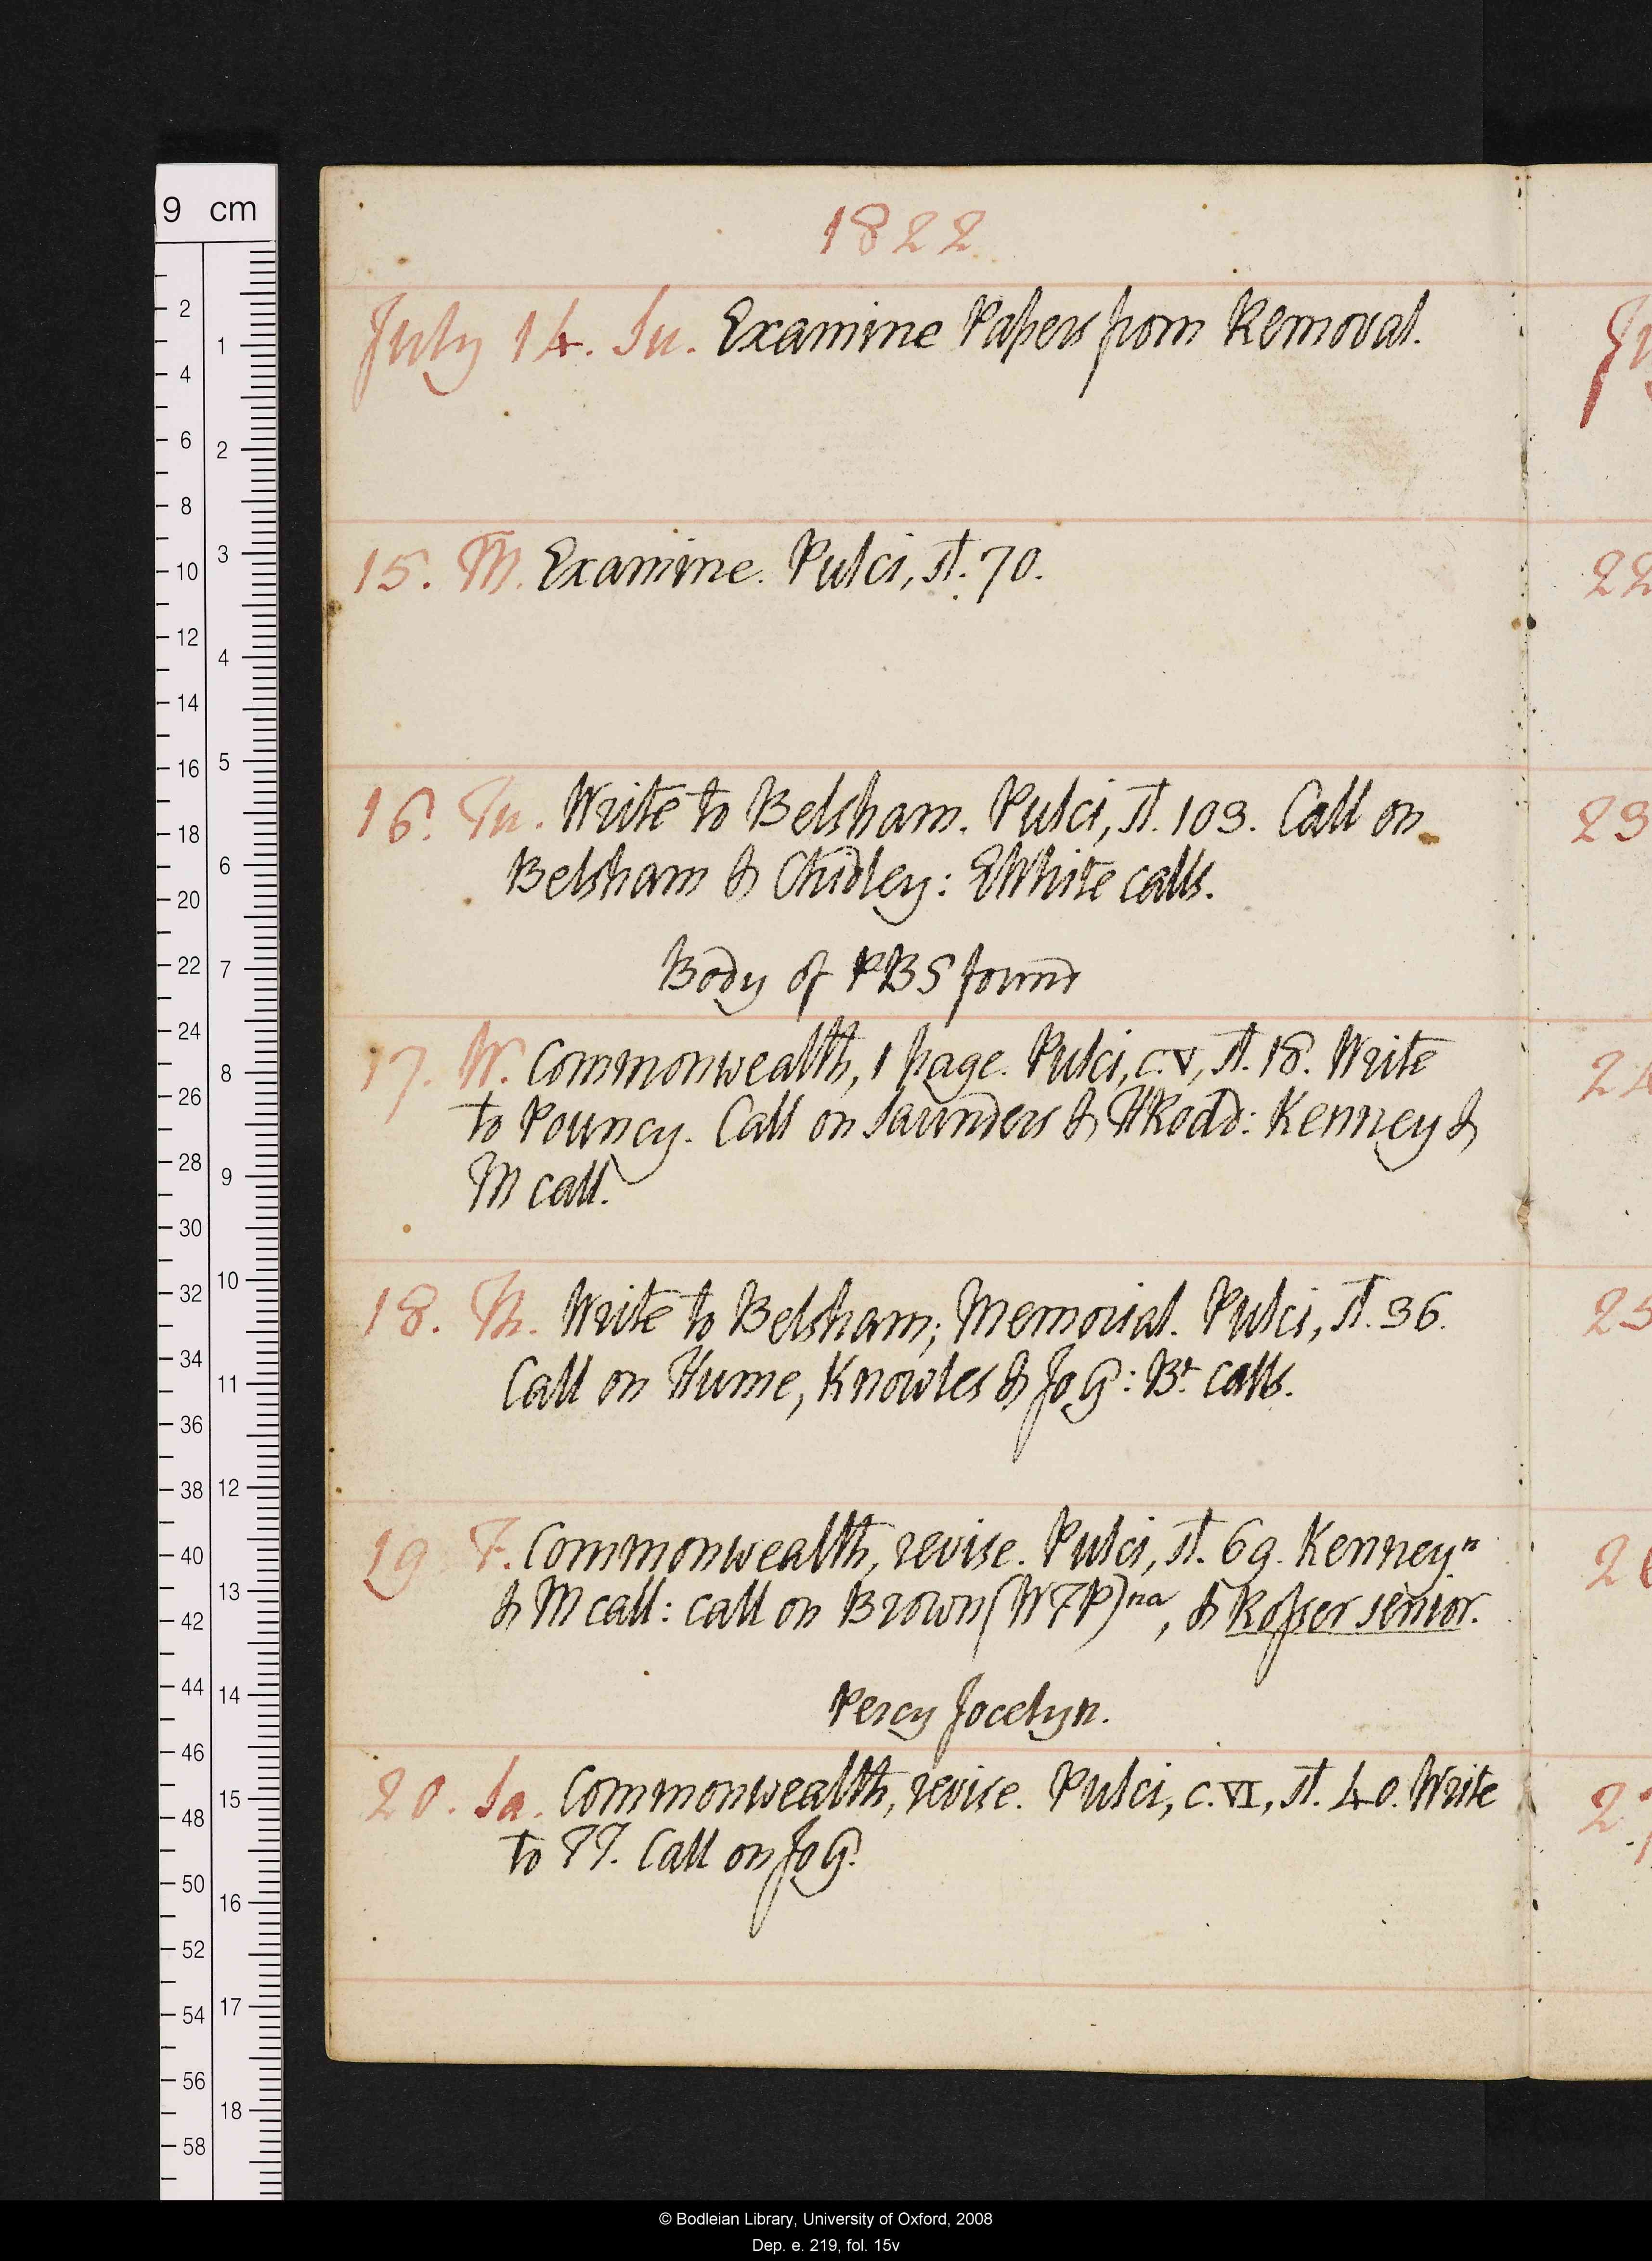 1822
July 14. Su. Examine Papers from Removal.
15. M. Examine. Pulci, st. 70.
16. Tu. Write to Belsham. Pulci, st. 103. Call on
Belsham & Chidley: EWhite calls.
Body of PBS found
17. W. Commonwealth, 1 page. Pulci, c. V, st. 18. Write
to Pouncy. Call on Saunders & HRodd: Kenney &
M call.
18. Th. Write to Belsham; Memorial. Pulci, st. 36.
Call on Hume, Knowles & Jo G: Bt. calls.
19 F. Commonwealth, revise. Pulci, st. 69. Kenneyn
& M call: call on Brown (WFP)na, & Rosser senior.
Percy Jocelyn.
20. Sa. Commonwealth, revise. Pulci, c. VI, st. 40. Write
to TT. Call on Jo G.
9 cm
2 4 6 8 10 12 14 16 18 20 22 24 26 28 30 32 34 36 38 40 42 44 46 48 50 52 54 56 58
1 2 3 4 5 6 7 8 9 10 11 12 13 14 15 16 17 18
22
23
© Bodleian Library, University of Oxford, 2008
Dep. e. 219, fol. 15v